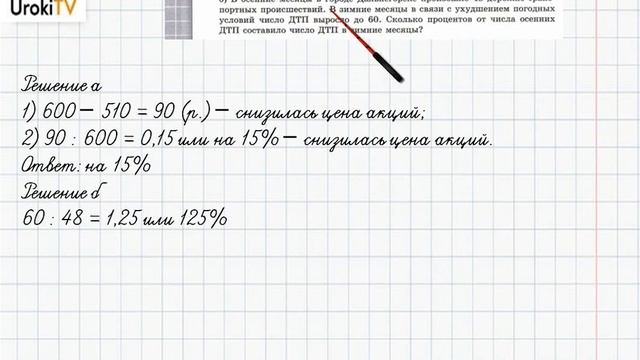 UrokiTV
б) В осенние месяцы в городе Дальнегорске произошло 48 дорожно-транс-
портных происшествий. В зимние месяцы в связи с ухудшением погодных
условий число ДТП выросло до 60. Сколько процентов от числа осенних
ДТП составило число ДТП в зимние месяцы?
Решение а
1) 600 – 510 = 90 (р.) – снизилась цена акций;
2) 90 : 600 = 0,15 или на 15% – снизилась цена акций.
Ответ: на 15%
Решение б
60 : 48 = 1,25 или 125%